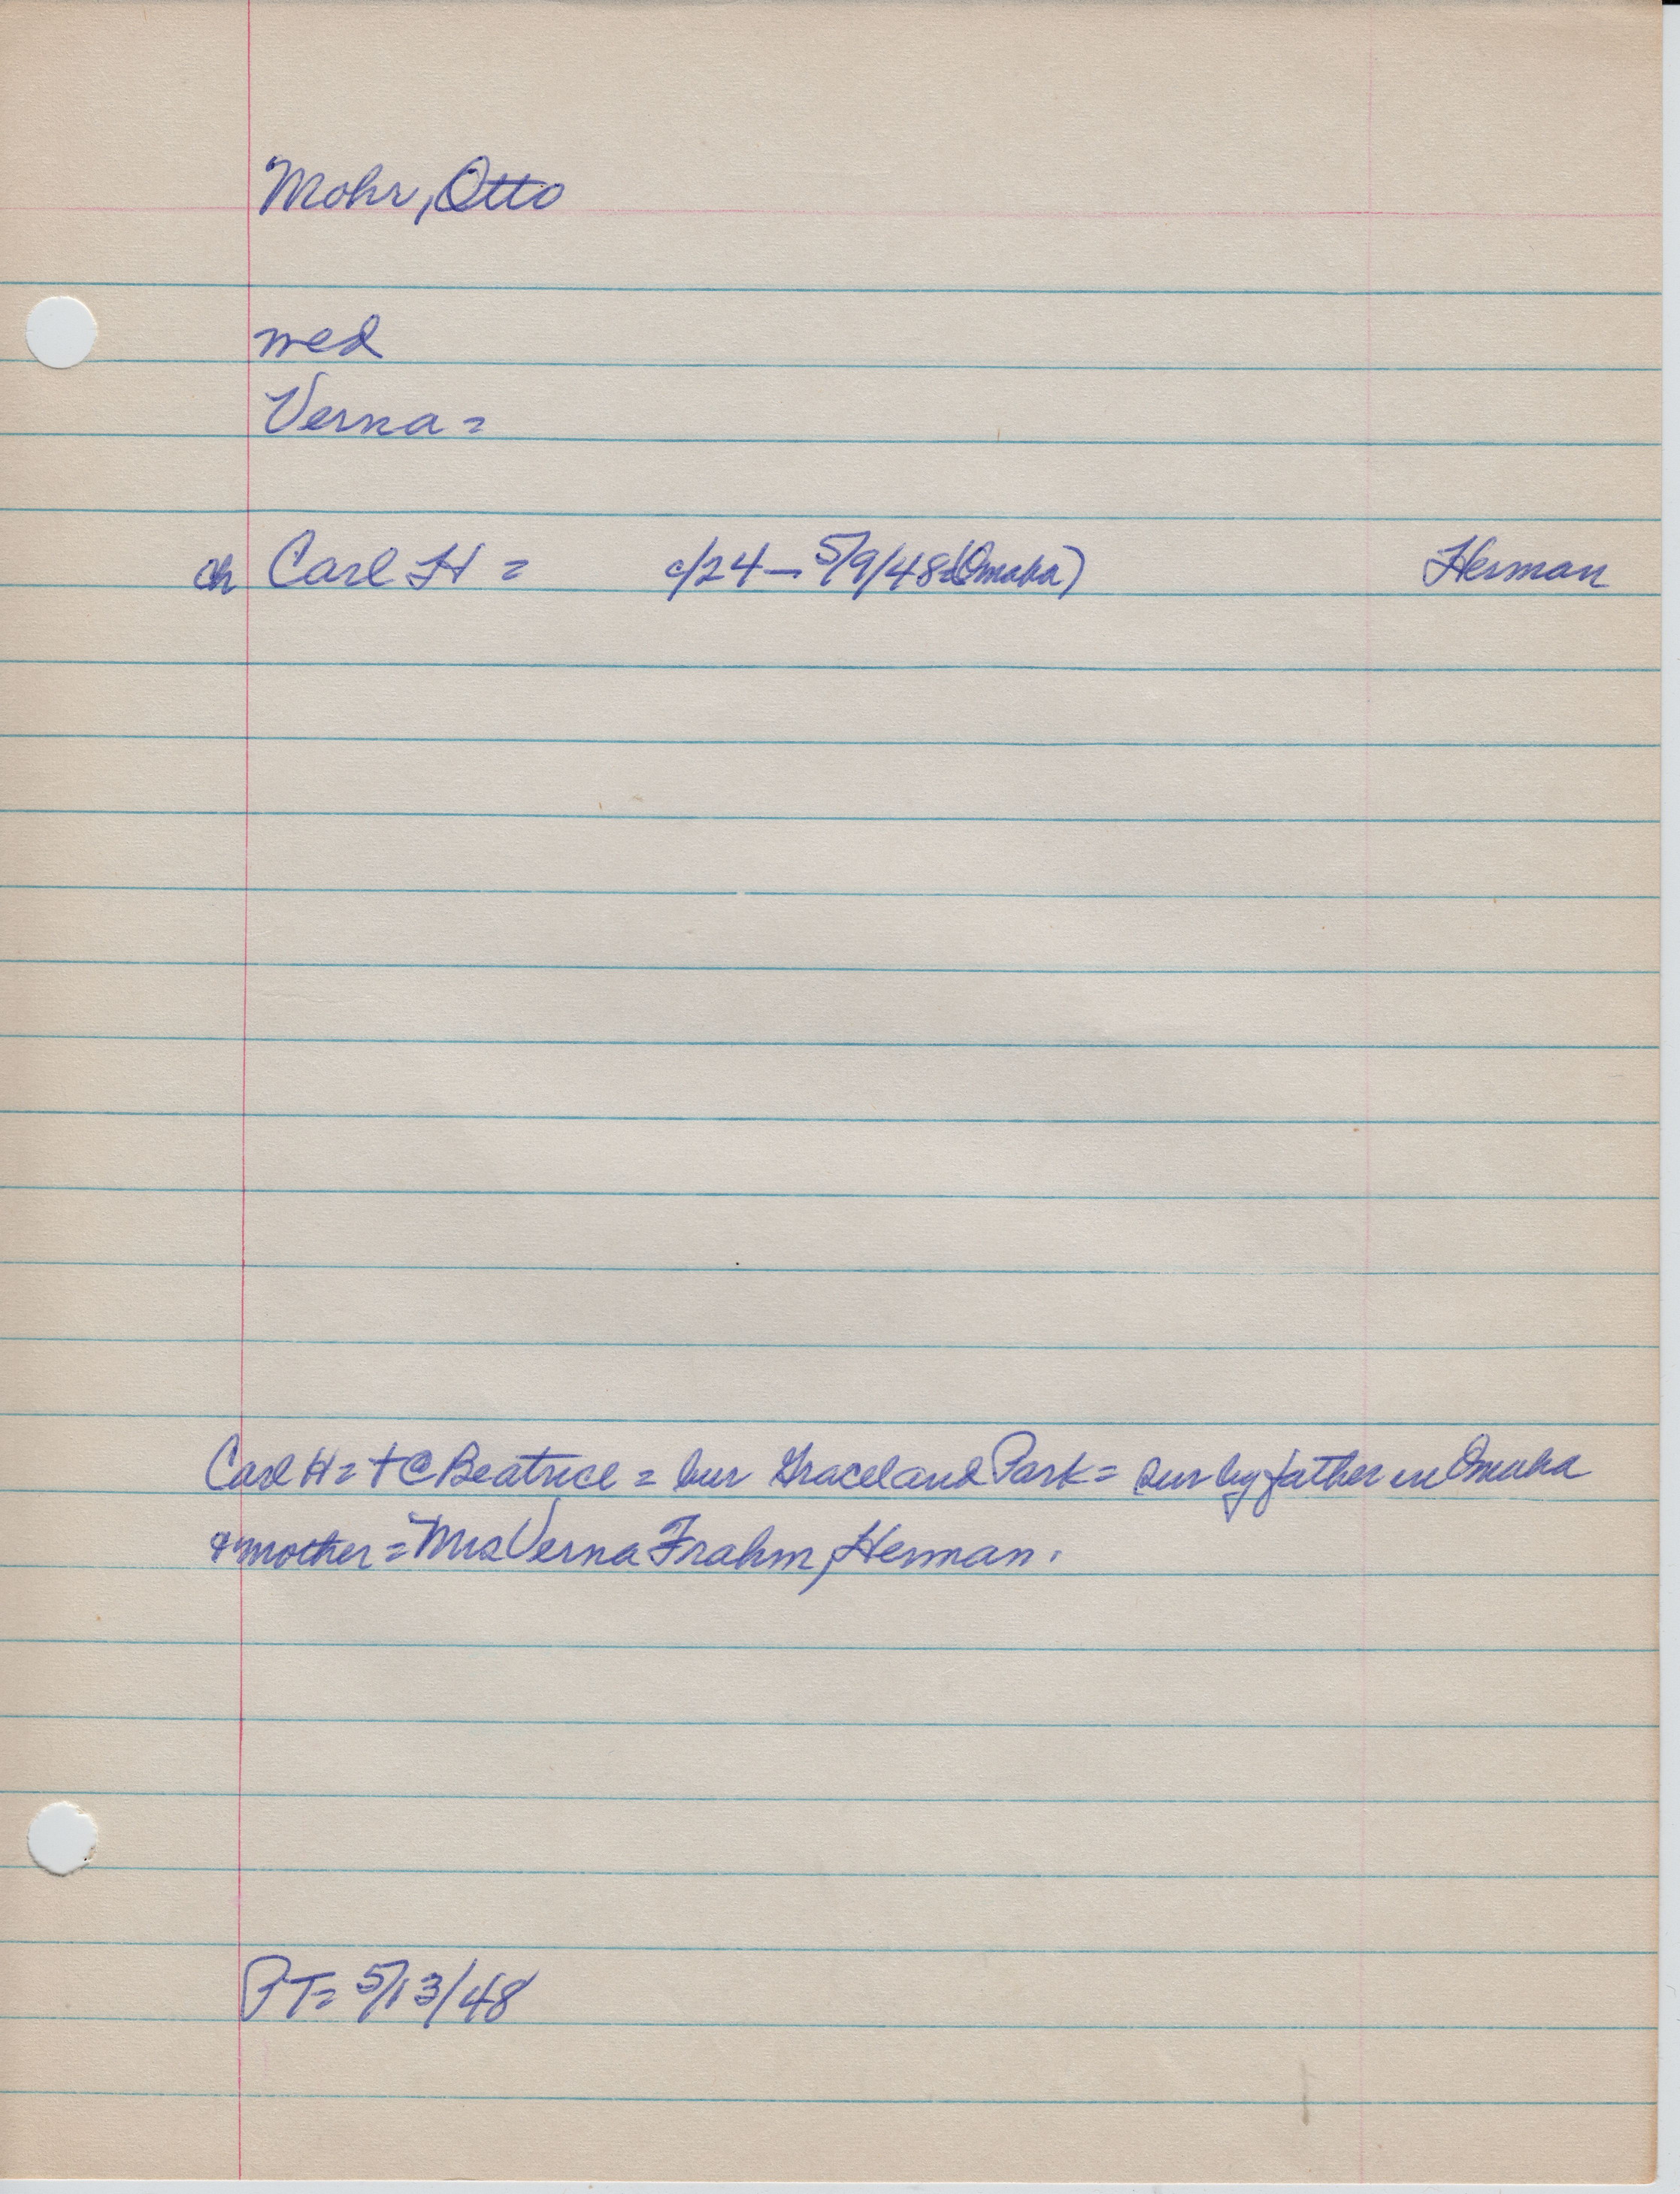 Mohr, Otto
med
Verna =
ch Carl H = c/24 - 5/9/48 (Omaha) Herman
Carl H = + @ Beatrice = bur Graceland Park = sur by father in Omaha
& mother = Mrs Verna Frahm, Herman.
PT = 5/13/48